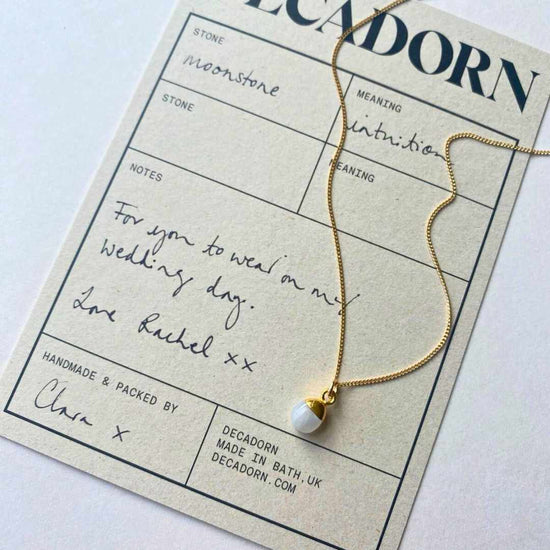 DECADORN
STONE
moonstone
MEANING
intuition
STONE
MEANING
NOTES
For you to wear on my
wedding day.
Love Rachel xx
HANDMADE & PACKED BY
Clara x
DECADORN
MADE IN BATH,UK
DECADORN.COM